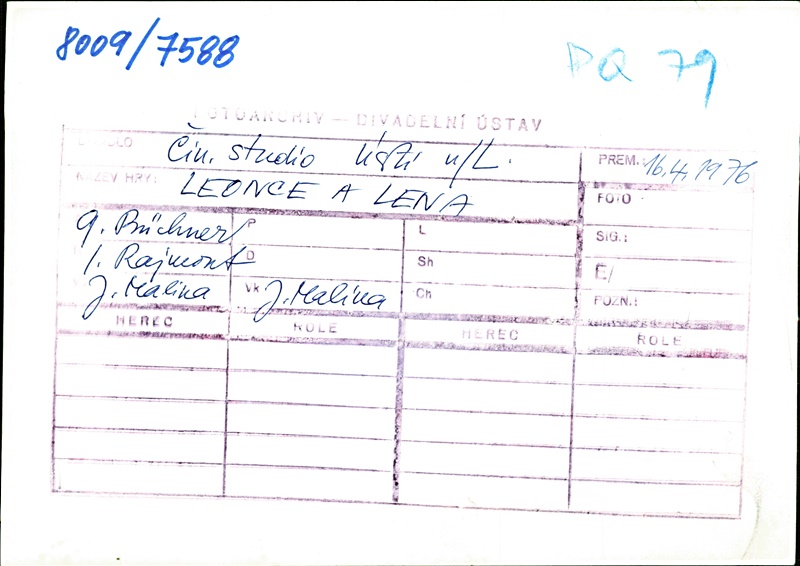 8009/7588
DQ 79
FOTOARCHIV — DIVADELNÍ ÚSTAV
DIVADLO Čin. studio Ústí n/L. PREM.: 16.4.1976
NÁZEV HRY: LEONCE A LENA FOTO
G. Büchner P L SIG.:
I. Rajmont D Sh E/
J. Malina Vk J. Malina Ch POZN.:
HEREC ROLE HEREC ROLE